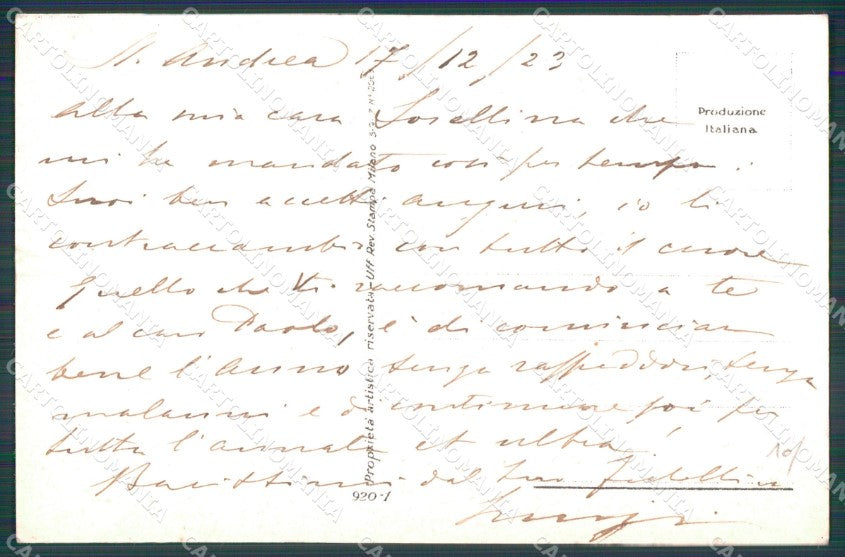 S. Andrea 17/12/23
Produzione
Italiana
alla mia cara Sorellina che
mi ha mandato con per tempo i
suoi ben accetti auguri, io li
contraccambio con tutto il cuore
Quello che Vi raccomando a te
e al caro Paolo, è di cominciar
bene l'anno senza raffreddori, senza
malanni e di continuare poi per
tutta l'annata et ultra!
Baciottissimi dal tuo fratellino
Luigi
Proprietà artistica riservata - Uff. Rev. Stampa Milano
920-1
CARTOLINOMANIA